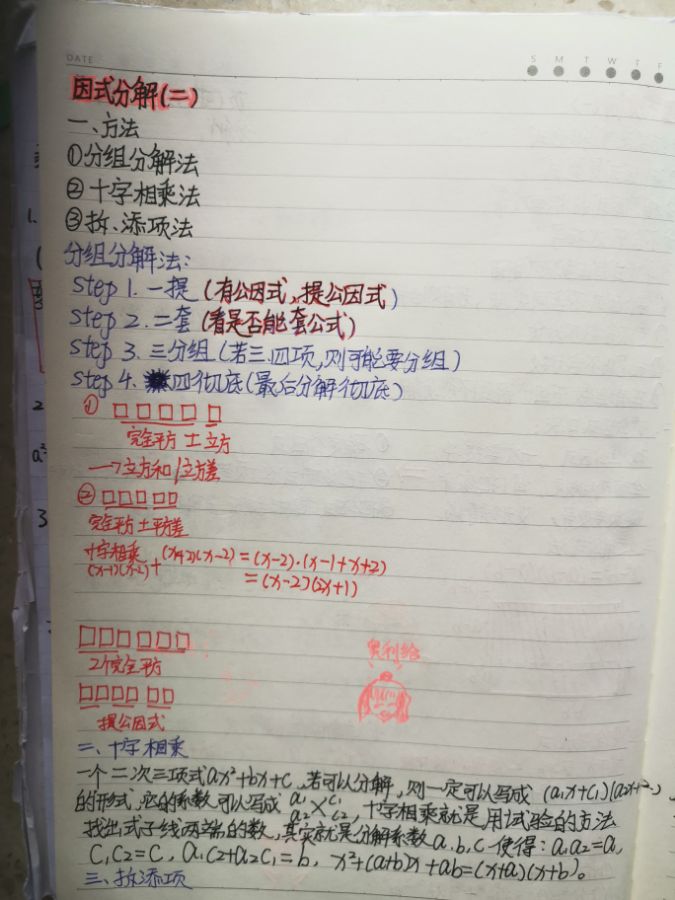 DATE
S M T W T F
因式分解(二)
一、方法
①分组分解法
②十字相乘法
③拆、添项法
分组分解法:
Step 1. 一提(有公因式,提公因式)
Step 2. 二套(看是否能套公式)
Step 3. 三分组(若三四项,则可能要分组)
Step 4. 四彻底(最后分解彻底)
① □□□□ □
完全平方 ± 立方
→立方和/立方差
② □□□ □□
完全平方 ± 平方差
十字相乘
(x-1)(x-2)+(x+2)(x-2)=(x-2)·(x-1+x+2)
=(x-2)(2x+1)
□□□□□□
2个完全平方
奥利给
□□□□ □□
提公因式
二、十字相乘
一个二次三项式ax²+bx+c,若可以分解,则一定可以写成 (a₁x+c₁)(a₂x+
的形式,它的系数可以写成 a₁ c₁ a₂ c₂,十字相乘就是用试验的方法
找出式子线两端的数,其实就是分解系数a.b.c使得:a₁a₂=a,
C₁C₂=C,a₁c₂+a₂c₁=b,x²+(a+b)x+ab=(x+a)(x+b)。
三、拆添项